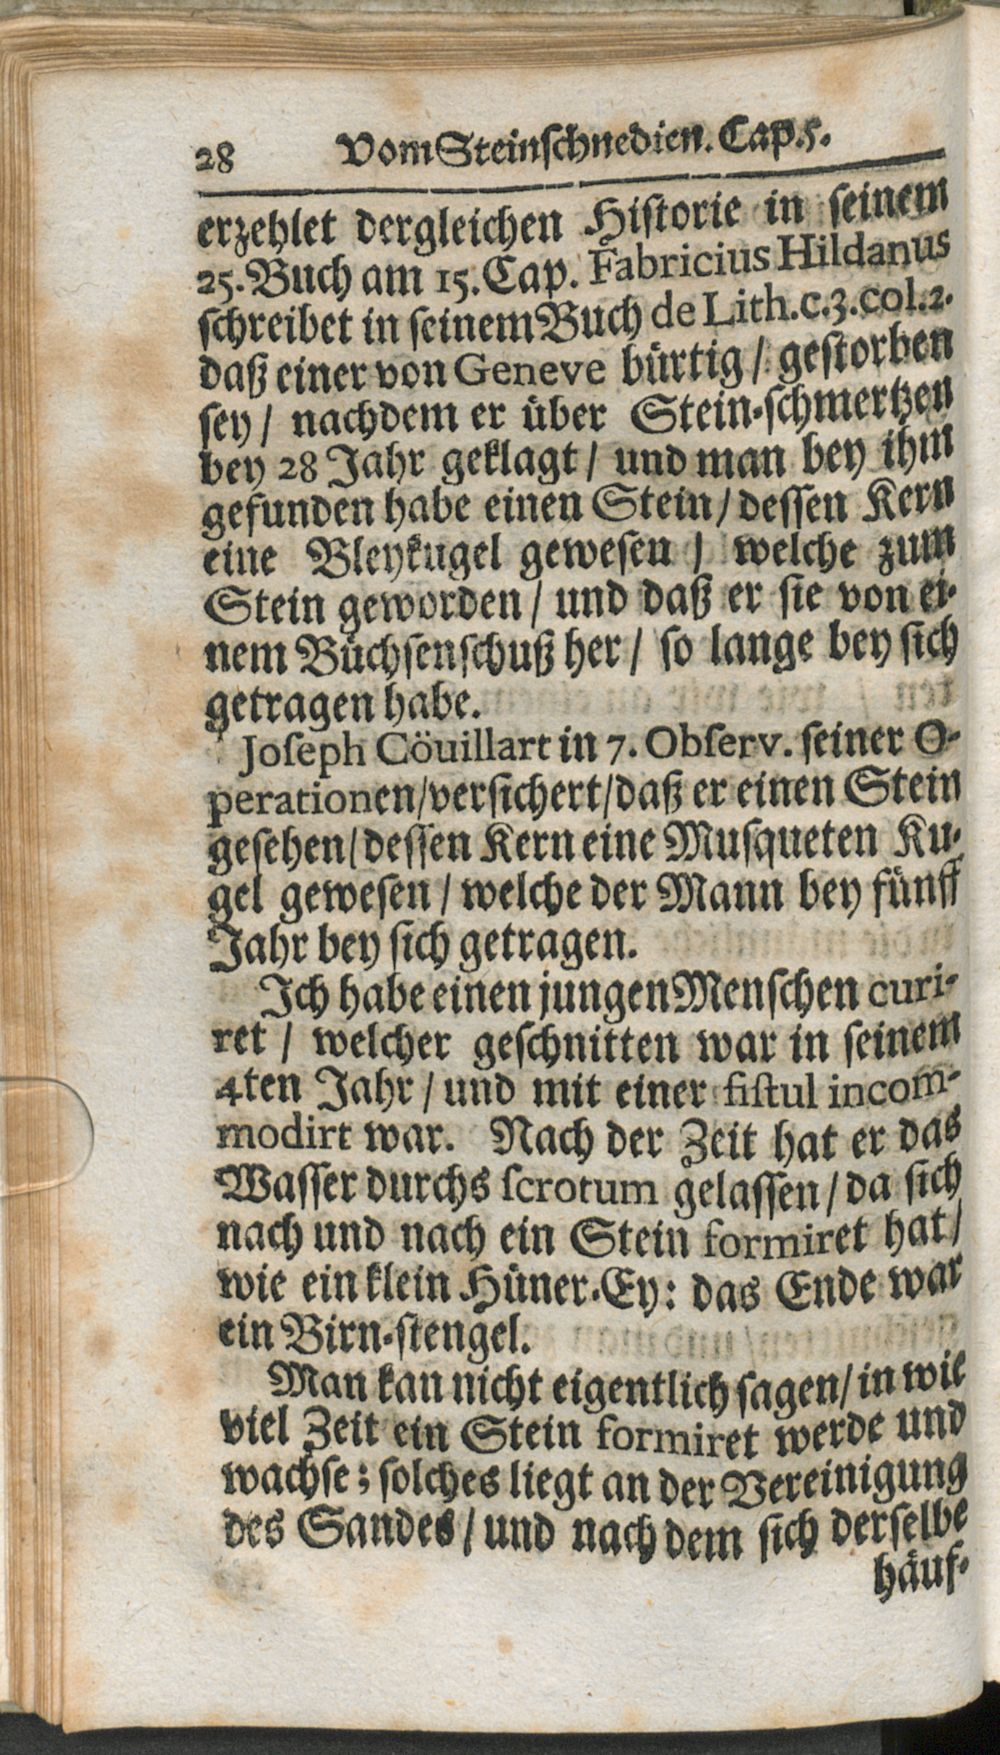 28 Vom Steinschnedien. Cap. 5.
erzehlet dergleichen Historie in seinem
25. Buch am 15. Cap. Fabricius Hildanus
schreibet in seinem Buch de Lith. c. 3. col. 2.
daß einer von Geneve bürtig / gestorben
sey / nachdem er über Stein-schmertzen
bey 28 Jahr geklagt / und man bey ihm
gefunden habe einen Stein / dessen Kern
eine Bleykugel gewesen / welche zum
Stein geworden / und daß er sie von ei-
nem Büchsenschuß her / so lange bey sich
getragen habe.
Joseph Cöuillart in 7. Observ. seiner O-
perationen / versichert / daß er einen Stein
gesehen / dessen Kern eine Musqueten Ku-
gel gewesen / welche der Mann bey fünff
Jahr bey sich getragen.
Ich habe einen jungen Menschen curi-
ret / welcher geschnitten war in seinem
4ten Jahr / und mit einer fistul incom-
modirt war. Nach der Zeit hat er das
Wasser durchs scrotum gelassen / da sich
nach und nach ein Stein formiret hat /
wie ein klein Hüner-Ey: das Ende war
ein Birn-stengel.
Man kan nicht eigentlich sagen / in wie
viel Zeit ein Stein formiret werde und
wachse; solches liegt an der Vereinigung
des Sandes / und nach dem sich derselbe
häuf-